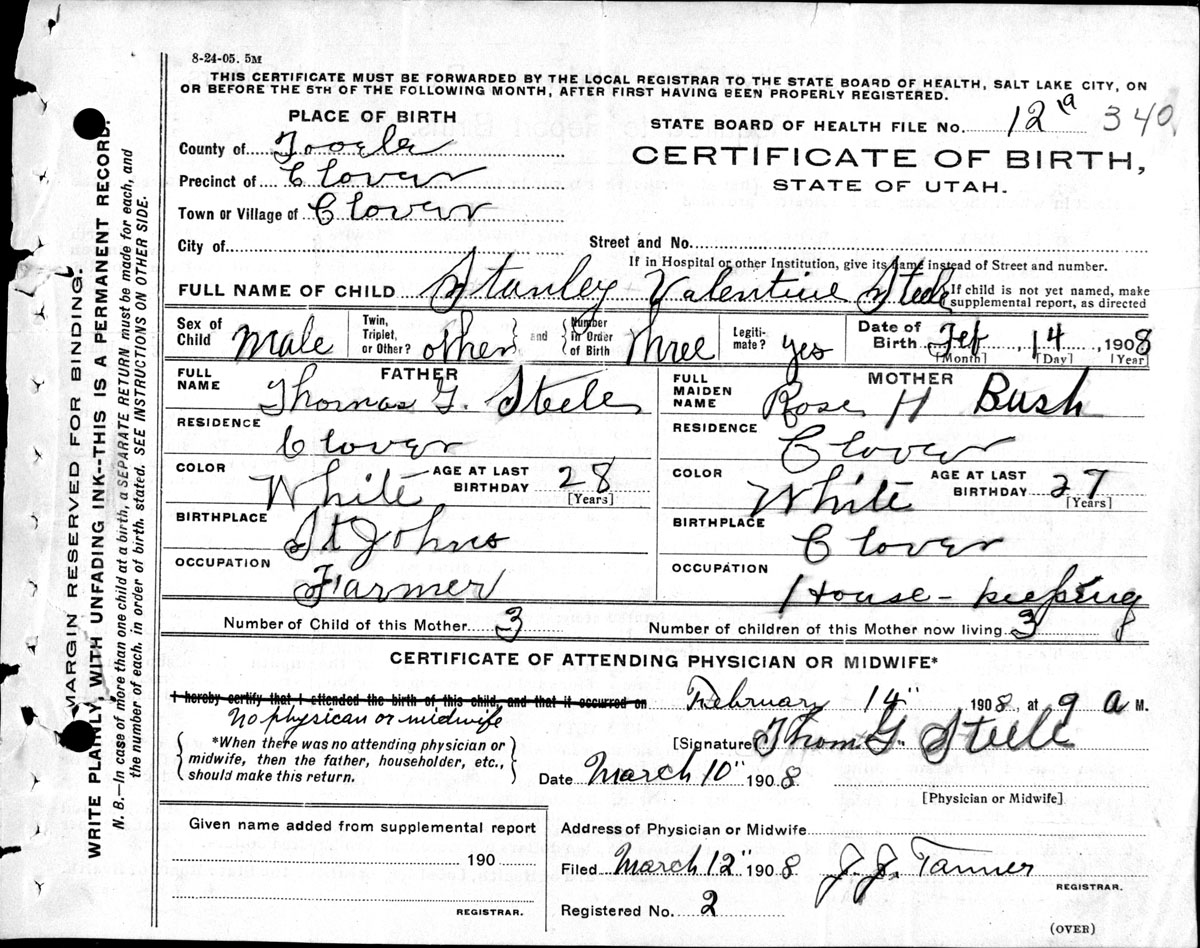 8-24-05. 5M
THIS CERTIFICATE MUST BE FORWARDED BY THE LOCAL REGISTRAR TO THE STATE BOARD OF HEALTH, SALT LAKE CITY, ON
OR BEFORE THE 5TH OF THE FOLLOWING MONTH, AFTER FIRST HAVING BEEN PROPERLY REGISTERED.
PLACE OF BIRTH
STATE BOARD OF HEALTH FILE No. 12 a 340
County of Tooele
CERTIFICATE OF BIRTH,
STATE OF UTAH.
Precinct of Clover
Town or Village of Clover
City of Street and No.
If in Hospital or other Institution, give its name instead of Street and number.
FULL NAME OF CHILD Stanley Valentine Steele
If child is not yet named, make
supplemental report, as directed
Sex of Child Male Twin, Triplet, or Other? other and Number in Order of Birth Three Legiti-mate? yes Date of Birth Feb 14, 1908
[Month] [Day] [Year]
FATHER
FULL NAME Thomas G. Steele
RESIDENCE Clover
COLOR White AGE AT LAST BIRTHDAY 28
[Years]
BIRTHPLACE St Johns
OCCUPATION Farmer
MOTHER
FULL MAIDEN NAME Rose H Bush
RESIDENCE Clover
COLOR White AGE AT LAST BIRTHDAY 27
[Years]
BIRTHPLACE Clover
OCCUPATION House-keeping
Number of Child of this Mother 3 Number of children of this Mother now living 3
CERTIFICATE OF ATTENDING PHYSICIAN OR MIDWIFE*
I hereby certify that I attended the birth of this child, and that it occurred on February 14" 1908, at 9 a M.
No physician or midwife
*When there was no attending physician or
midwife, then the father, householder, etc.,
should make this return.
[Signature] Thom G. Steele
Date March 10" 1908
[Physician or Midwife]
Given name added from supplemental report
190
REGISTRAR.
Address of Physician or Midwife
Filed March 12" 1908 J. J. Tanner
REGISTRAR.
Registered No. 2
(OVER)
MARGIN RESERVED FOR BINDING.
WRITE PLAINLY, WITH UNFADING INK--THIS IS A PERMANENT RECORD.
N. B.—In case of more than one child at a birth, a SEPARATE RETURN must be made for each, and
the number of each, in order of birth, stated. SEE INSTRUCTIONS ON OTHER SIDE.